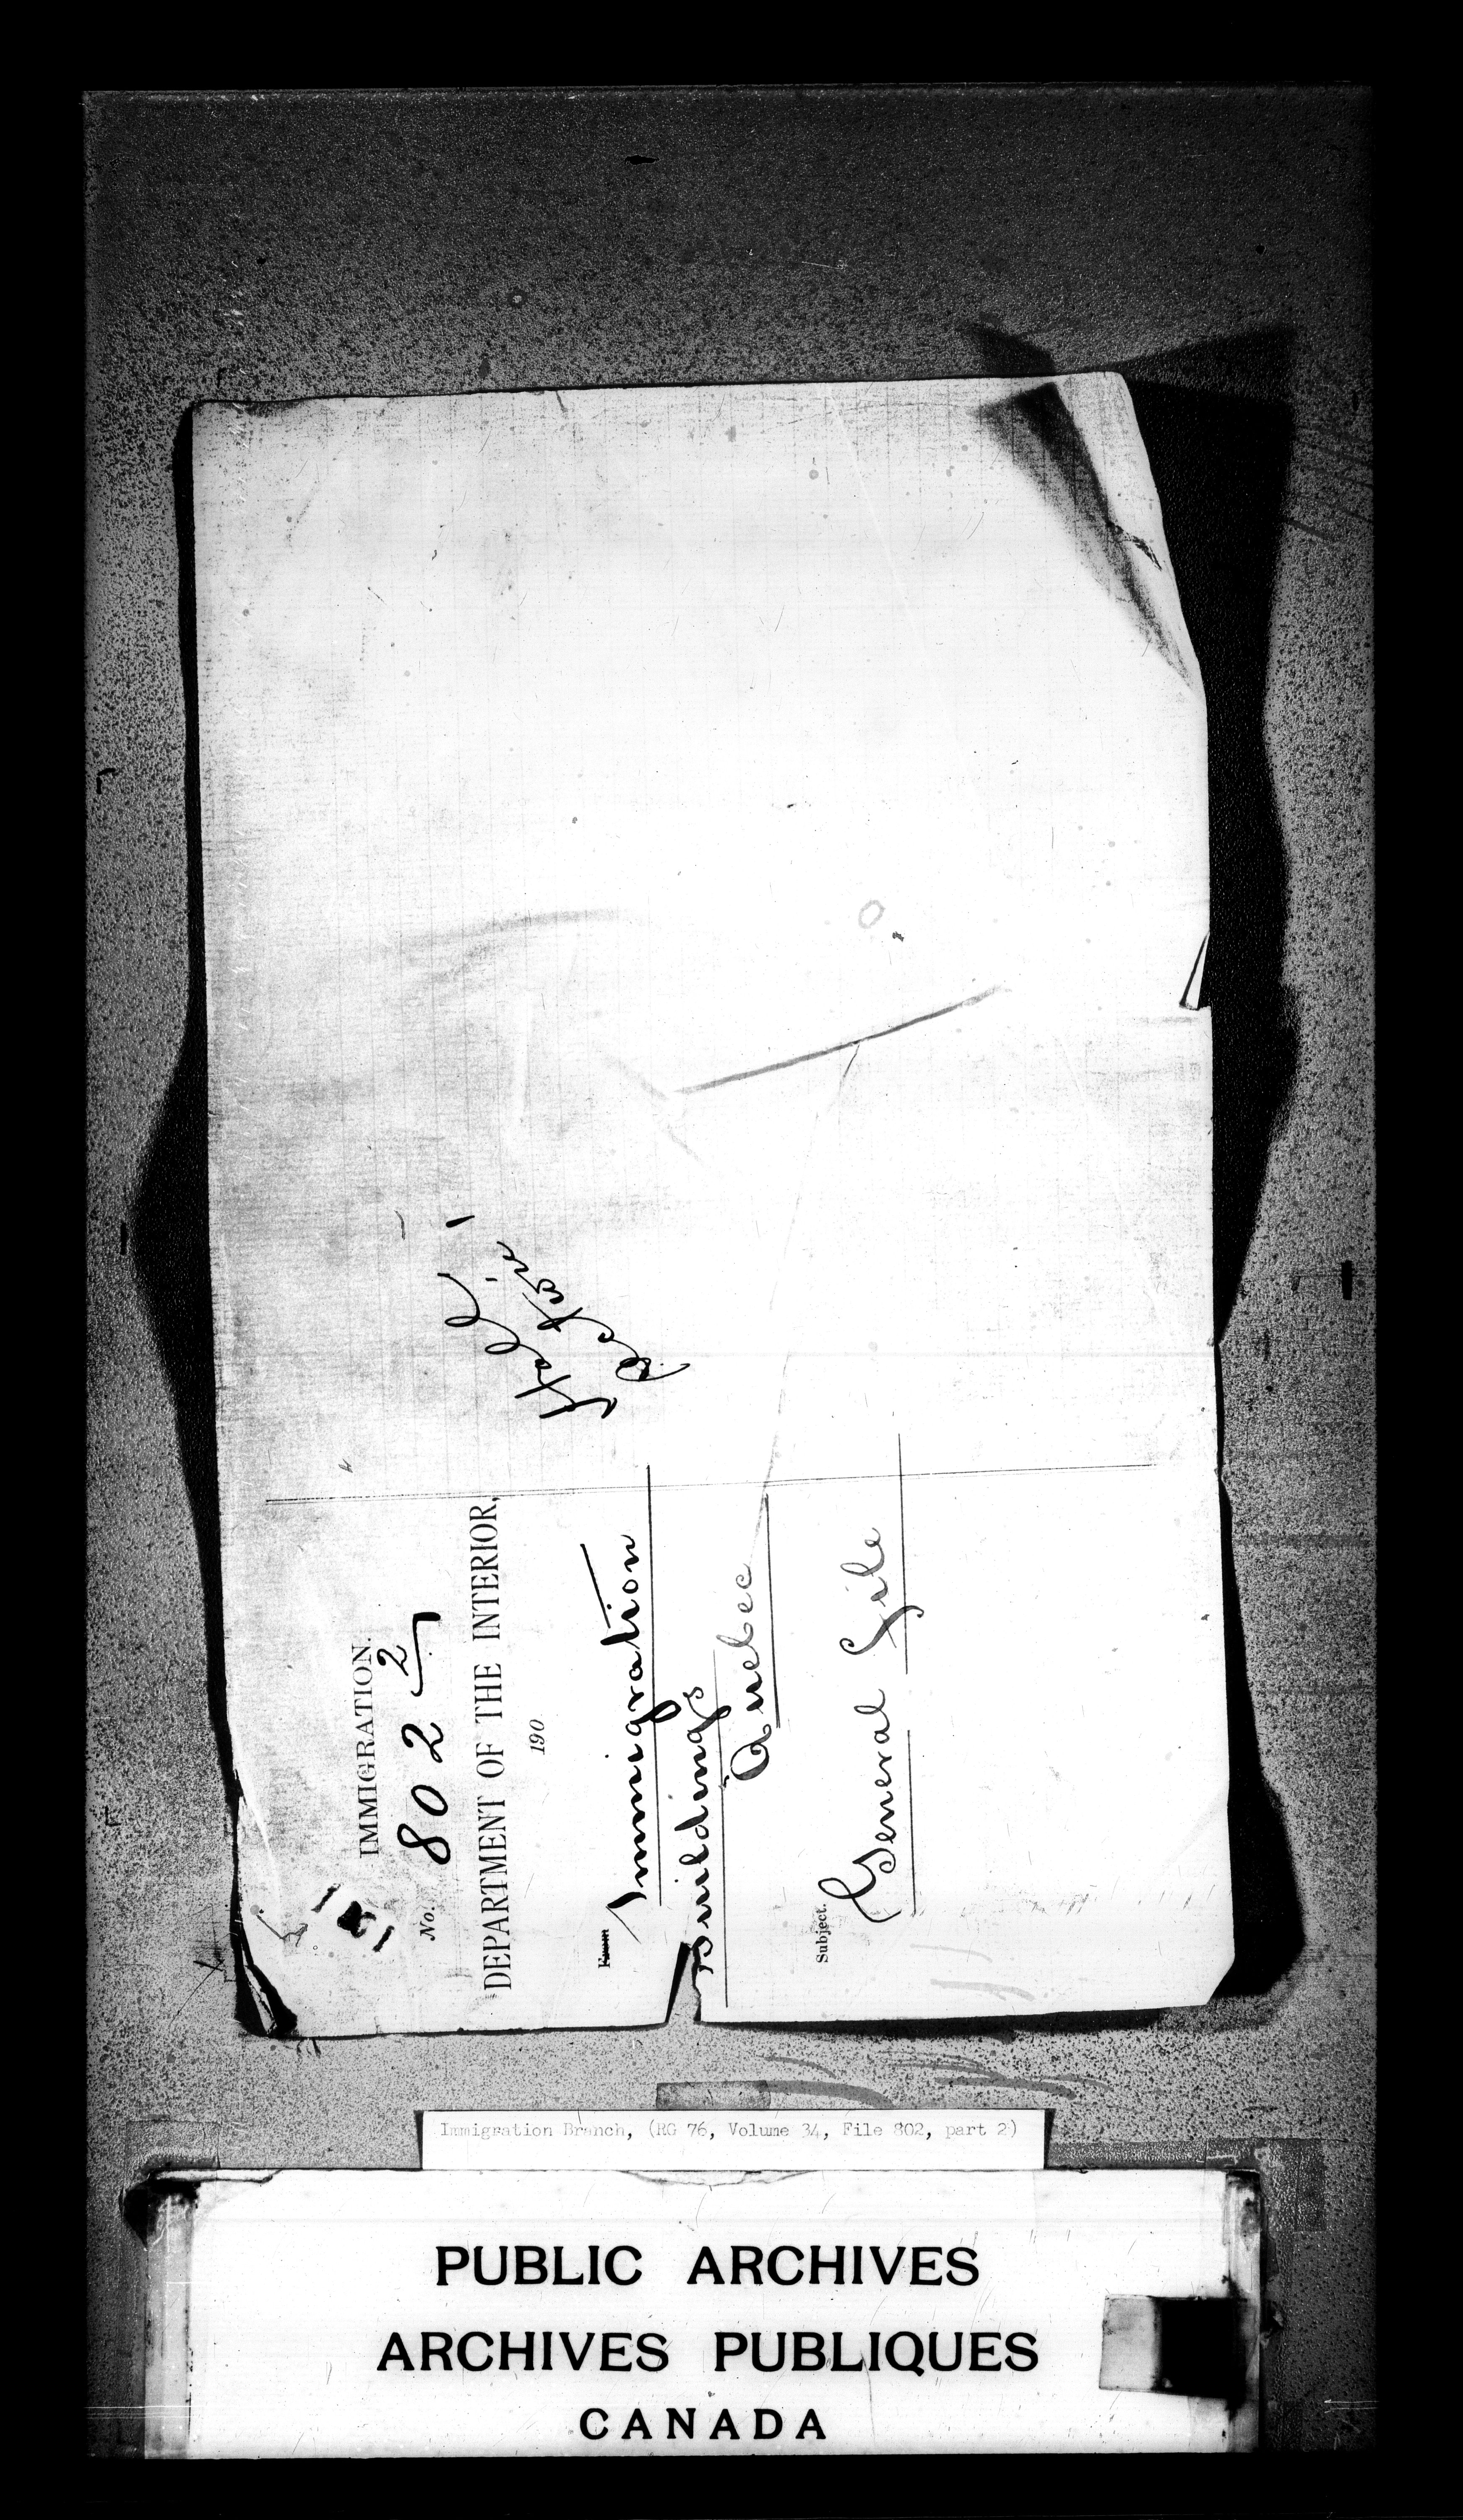 IMMIGRATION.
No. 802 2
DEPARTMENT OF THE INTERIOR,
190
From Immigration
Buildings
Quebec
Subject. General File
Immigration Branch, (RG 76, Volume 34, File 802, part 2)
PUBLIC ARCHIVES
ARCHIVES PUBLIQUES
CANADA